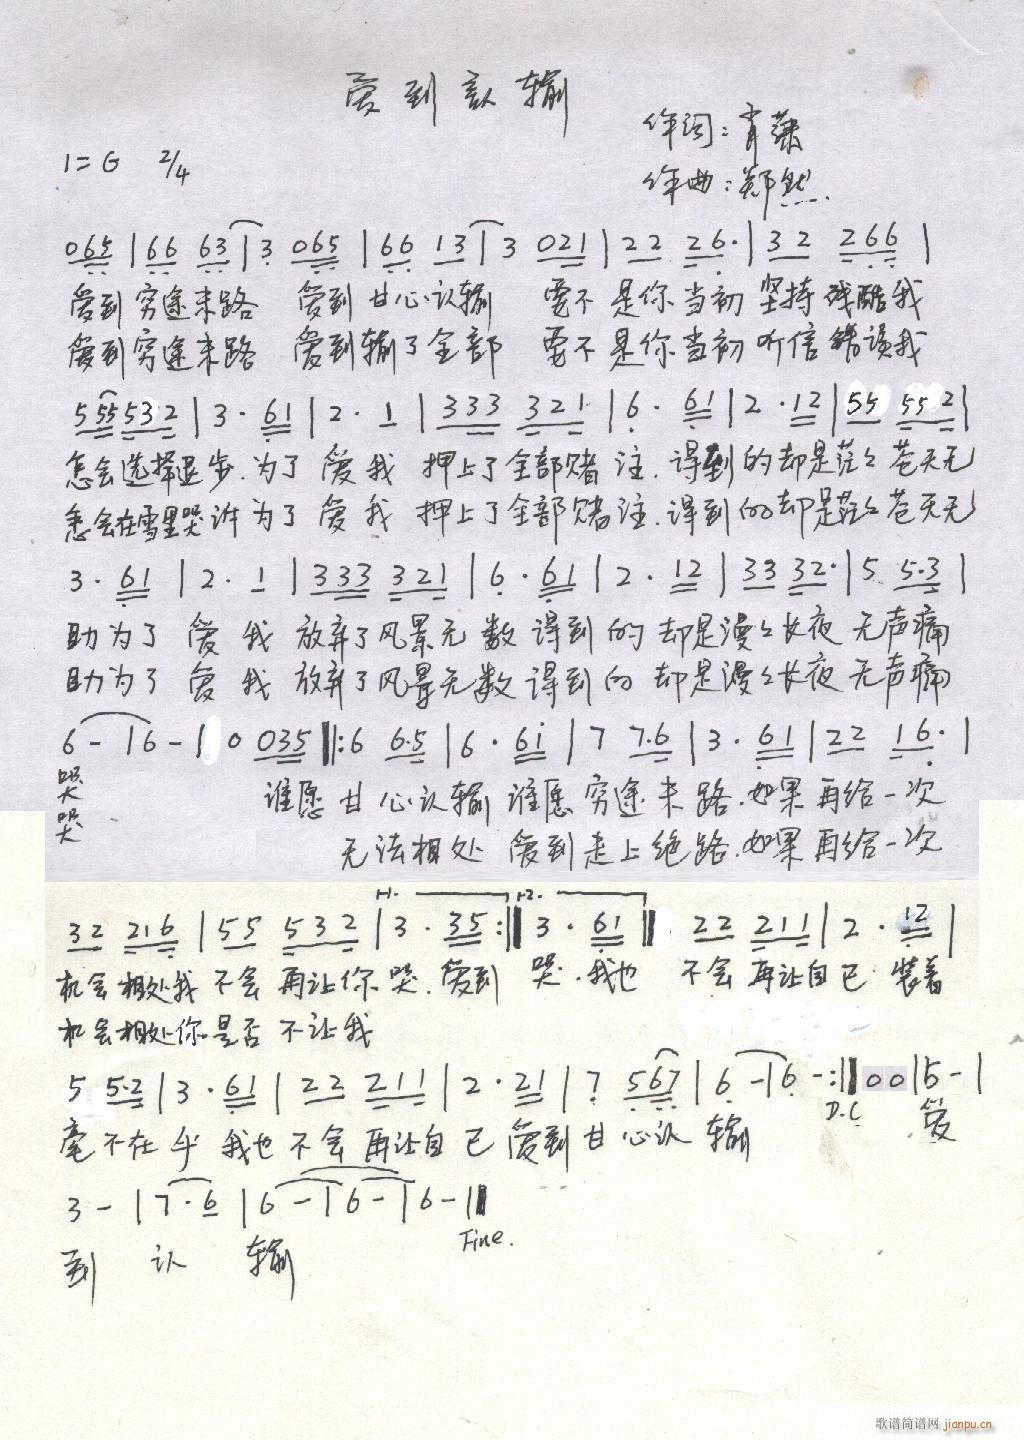 爱到认输
作词：肖
1=G 2/4
作曲：郑然
065|66 63|3 065|66 13|3 021|22 26·|32 266|
爱到穷途末路 爱到甘心认输 要不是你当初坚持残酷我
爱到穷途末路 爱到输了全部 要不是你当初听信错误我
5 55532|3·61|2·1|333 321|6·61|2·12|55 552|
怎会选择退步.为了爱我 押上了全部赌注.得到的却是茫々苍天无
怎会在雪里哭诉为了爱我 押上了全部赌注.得到的却是茫々苍天无
3·61|2·1|333 321|6·61|2·12|33 32·|5 5·3|
助为了爱我 放弃了风景无数得到的却是漫々长夜无声痛
助为了爱我 放弃了风景无数得到的却是漫々长夜无声痛
6-|6-|0 035‖:6 6·5|6·61|7 7·6|3·61|22 16·|
哭 谁愿甘心认输谁愿穷途末路.如果再给一次
哭 无法相处 爱到走上绝路.如果再给一次
1. 2.
32 216|55 532|3·35:‖3·61‖22 211|2·12|
机会相处我不会再让你哭.爱到 哭.我也 不会再让自己 装着
机会相处你是否不让我
5 5·2|3·61|22 211|2·21|7 567|6-|6-:‖00|5-|
毫不在乎 我也不会再让自己爱到甘心认输 D.C 爱
3-|7·6|6-|6-|6-‖
到 认 输 Fine.
歌谱简谱网 jianpu.cn